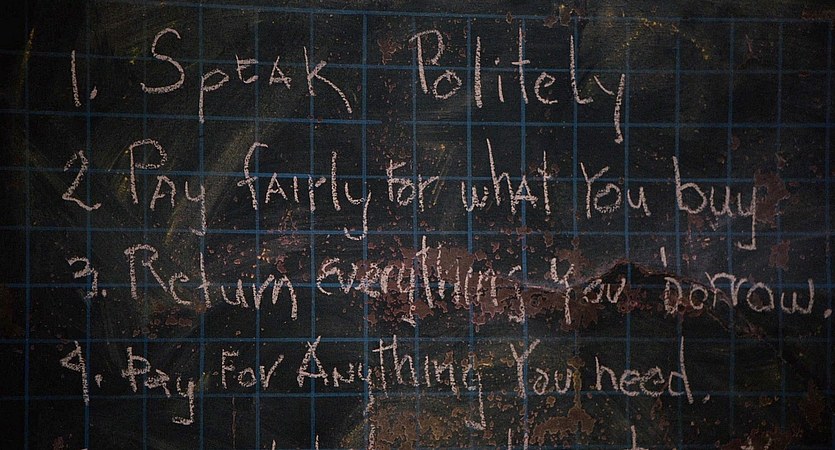 1. Speak Politely
2 Pay fairly for what You buy
3. Return everything You borrow.
4. Pay For Anything You need.